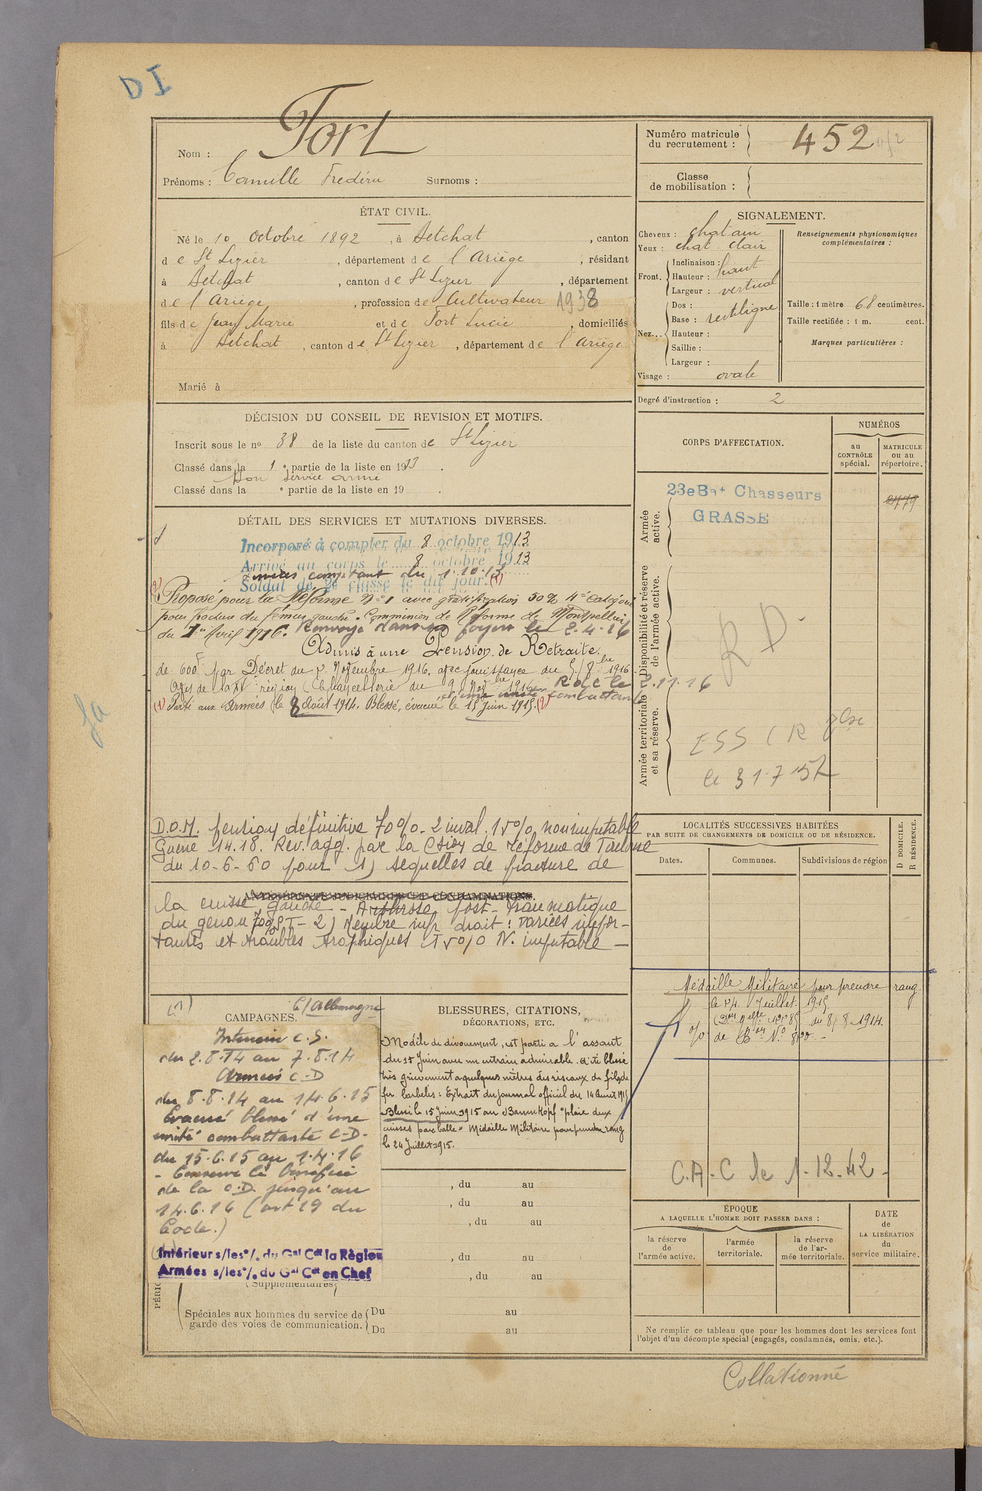 DI
Nom : Fort
Prénoms : Camille Frédéric Surnoms :
Numéro matricule du recrutement : 452
Classe de mobilisation :
ÉTAT CIVIL.
Né le 10 octobre 1892, à Betchat, canton
de St Lizier, département de l'Ariège, résidant
à Betchat, canton de St Lizier, département
de l'Ariège, profession de Cultivateur 1938
fils de Jean Marie et de Fort Lucie, domiciliés
à Betchat, canton de St Lizier, département de l'Ariège
Marié à
SIGNALEMENT.
Cheveux : chatain
Yeux : chat clair
Front. Inclinaison :
Hauteur : haut
Largeur : vertical
Nez... Dos :
Base : rectiligne
Hauteur :
Saillie :
Largeur :
Visage : ovale
Renseignements physionomiques complémentaires :
Taille : 1 mètre 68 centimètres.
Taille rectifiée : 1 m. cent.
Marques particulières :
Degré d'instruction : 2
DÉCISION DU CONSEIL DE REVISION ET MOTIFS.
Inscrit sous le n° 38 de la liste du canton de St Lizier
Classé dans la 1e partie de la liste en 1913.
Bon service armé
Classé dans la e partie de la liste en 19 .
CORPS D'AFFECTATION.
NUMÉROS
au CONTRÔLE spécial.
MATRICULE ou au répertoire.
Armée active.
23e Bon Chasseurs
GRASSE
Disponibilité et réserve de l'armée active.
RD.
Armée territoriale et sa réserve.
ESS (R
le 31-7-52
DÉTAIL DES SERVICES ET MUTATIONS DIVERSES.
Incorporé à compter du 8 octobre 1913
Arrivé au corps le 8 octobre 1913
années comptant du 1.10.13
Soldat de 2e classe le dit jour. (1)
Proposé pour la Réforme n° 1 avec gratification 50% 4e catégorie
pour fracture du fémur gauche. Commission de Réforme de Montpellier
du 1er Avril 1916. Renvoyé dans ses foyers le 2-4-16
Admis à une Pension de Retraite
de 600f par Décret du 2 Novembre 1916, avec jouissance du
(1) Parti aux Armées le 8 Août 1914. Blessé, évacué le 15 Juin 1915. (2)
D.O.M. pension définitive 70%. 2 inval. 15% non imputable
Guerre 14.18. Rev. agg. par la Coion de réforme de Toulouse
du 10-6-60 pour 1) séquelles de fracture de
la cuisse gauche - Arthrose post-traumatique
du genou 70% - 2) Membre infr droit : varices impor-
tantes et troubles trophiques 15% N. imputable —
LOCALITÉS SUCCESSIVES HABITÉES
PAR SUITE DE CHANGEMENTS DE DOMICILE OU DE RÉSIDENCE.
Dates. Communes. Subdivisions de région
D DOMICILE.
R RÉSIDENCE.
Médaille Militaire pour prendre rang
le 24 Juillet 1915
du 8/8-1914.
C.A.C le 1-12-42-
CAMPAGNES.
C/ Allemagne
Intérieur C.S.
du 2.8.14 au 7.8.14
Armées C-D
du 8.8.14 au 14.6.15
Evacué blessé d'une
unité combattante C-D.
du 15.6.15 au 1.4.16
- Conserve le bénéfice
de la C.D. jusqu'au
14.6.16 (art 19 du
Code.)
Intérieur s/les °/. du Gal Cdt la Région
Armées s/les °/. du Gal Cdt en Chef
(Supplémentaires)
BLESSURES, CITATIONS,
DÉCORATIONS, ETC.
Modèle de dévouement, est parti à l'assaut
du 15 Juin avec un entrain admirable. a été blessé
très grièvement à quelques mètres des réseaux de fils de
fer barbelés : Extrait du journal officiel du 14 Août 1915
Blessé le 15 Juin 1915 au Braunkopf "plaie deux
cuisses par balle" Médaille Militaire pour prendre rang
le 24 Juillet 1915.
, du au
, du au
, du au
, du au
, du au
Spéciales aux hommes du service de garde des voies de communication.
Du au
Du au
ÉPOQUE
A LAQUELLE L'HOMME DOIT PASSER DANS :
la réserve de l'armée active.
l'armée territoriale.
la réserve de l'armée territoriale.
DATE de LA LIBÉRATION du service militaire.
Ne remplir ce tableau que pour les hommes dont les services font
l'objet d'un décompte spécial (engagés, condamnés, omis, etc.).
Collationné